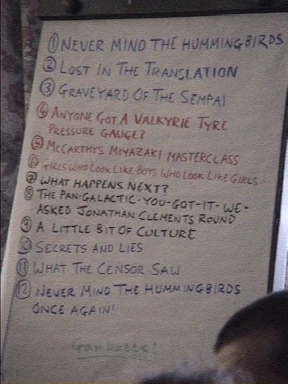 ① NEVER MIND THE HUMMINGBIRDS
② LOST IN THE TRANSLATION
③ GRAVEYARD OF THE SEMPAI
④ ANYONE GOT A VALKYRIE TYRE
PRESSURE GAUGE?
⑤ MCCARTHY'S MIYAZAKI MASTERCLASS
⑥ GIRLS WHO LOOK LIKE BOYS WHO LOOK LIKE GIRLS
⑦ WHAT HAPPENS NEXT?
⑧ THE PAN-GALACTIC-YOU-GOT-IT-WE-
ASKED JONATHAN CLEMENTS ROUND
⑨ A LITTLE BIT OF CULTURE
⑩ SECRETS AND LIES
⑪ WHAT THE CENSOR SAW
⑫ NEVER MIND THE HUMMINGBIRDS
ONCE AGAIN!